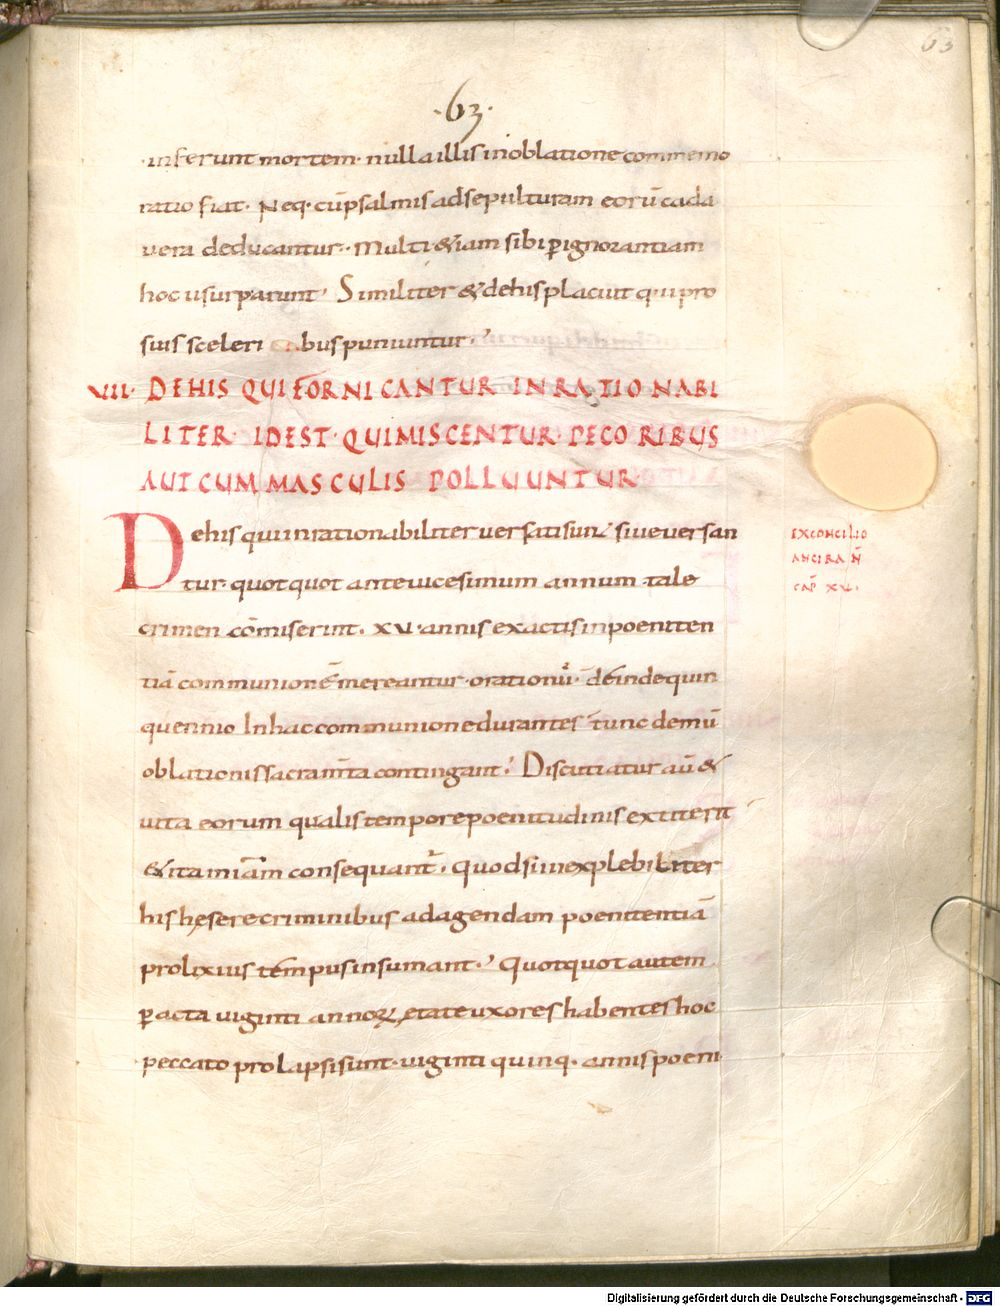 63
·63·
·inferunt mortem· nulla illis in oblatione commemo
ratio fiat· Neq· cū psalmis ad sepulturam eorū cada
vera deducantur·· Multi &iam sibi ꝑ ignorantiam
hoc usurparunt· Similiter & de his placuit qui pro
suis sceleri bus puniuntur·
VII· DE HIS QUI FORNICANTUR INRATIONABI
LITER· IDEST· QUI MISCENTUR PECORIBUS
AUT CUM MASCULIS POLLUUNTUR
De his qui inrationabiliter versati sunt sive versan
tur· quotquot ante vicesimum annum tale
crimen cōmiserint· XV· annis exactis in poeniten
tiā communionē mereantur· orationū· deinde quin
quennio In hac communione durantes tunc demū
oblationis sacramta contingant· Discutiatur aū &
vita eorum qualis tempore poenitudinis extiterit
& ita miām consequant· Quod si inexplebiliter
his hęsere criminibus ad agendam poenitentiā
prolixius tempus insumant· Quotquot autem
ꝑacta viginti annoꝝ ętate uxores habentes hoc
peccato prolapsi sunt· viginti quinq· annis poeni
EX CONCILIO
ANCIRAN̄
CAP̄ XV·
Digitalisierung gefördert durch die Deutsche Forschungsgemeinschaft - DFG